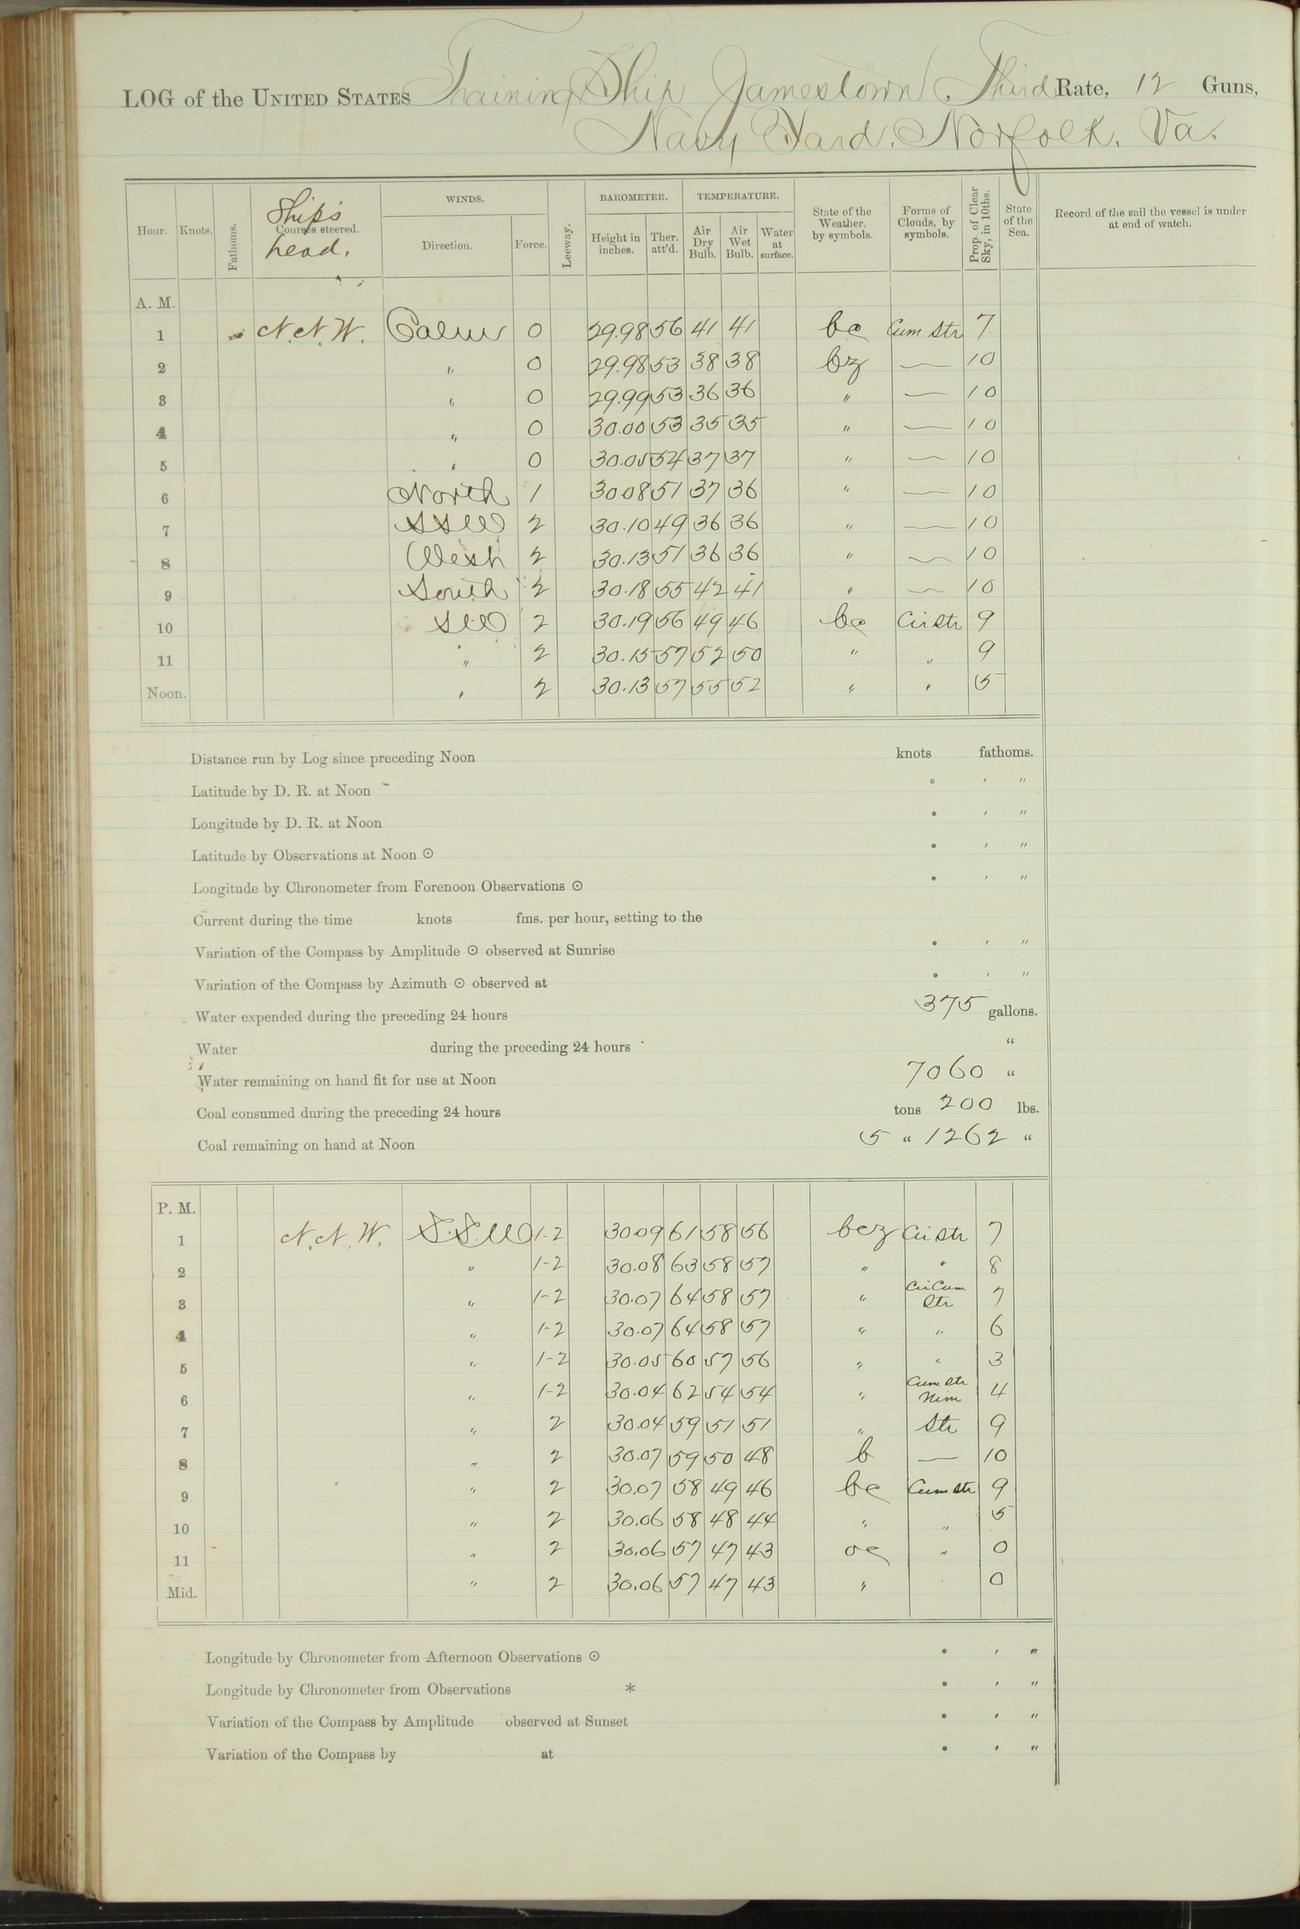 LOG of the UNITED STATES Training Ship Jamestown, Third Rate, 12 Guns,
Navy Yard, Norfolk, Va.
Hour. Knots. Fathoms. Ship's head. Courses steered. WINDS. Direction. Force. Leeway. BAROMETER. Height in inches. Ther. att'd. TEMPERATURE. Air Dry Bulb. Air Wet Bulb. Water at surface. State of the Weather, by symbols. Forms of Clouds, by symbols. Prop. of Clear Sky, in 10ths. State of the Sea. Record of the sail the vessel is under at end of watch.
A. M.
1 N.N.W. Calm 0 29.98 56 41 41 bc Cum Str 7
2 " 0 29.98 53 38 38 bz — 10
3 " 0 29.99 53 36 36 " — 10
4 " 0 30.00 53 35 35 " — 10
5 " 0 30.05 52 37 37 " — 10
6 North 1 30.08 51 37 36 " — 10
7 SSW 2 30.10 49 36 36 " — 10
8 West 2 30.13 51 36 36 " — 10
9 South 2 30.18 55 42 41 " — 10
10 SW 2 30.19 56 49 46 bc Cir Str 9
11 " 2 30.15 57 52 50 " " 9
Noon. " 2 30.13 57 55 52 " " 5
Distance run by Log since preceding Noon knots fathoms.
Latitude by D. R. at Noon ° ′ ″
Longitude by D. R. at Noon ° ′ ″
Latitude by Observations at Noon ☉ ° ′ ″
Longitude by Chronometer from Forenoon Observations ☉ ° ′ ″
Current during the time knots fms. per hour, setting to the
Variation of the Compass by Amplitude ☉ observed at Sunrise ° ′ ″
Variation of the Compass by Azimuth ☉ observed at ° ′ ″
Water expended during the preceding 24 hours 375 gallons.
Water during the preceding 24 hours "
Water remaining on hand fit for use at Noon 7060 "
Coal consumed during the preceding 24 hours tons 200 lbs.
Coal remaining on hand at Noon 5 " 1262 "
P. M.
1 N.N.W. S.S.W 1-2 30.09 61 58 56 bcz Cir Str 7
2 " 1-2 30.08 63 58 57 " " 8
3 " 1-2 30.07 64 58 57 " Cir Cum Str 7
4 " 1-2 30.07 64 58 57 " " 6
5 " 1-2 30.05 60 57 56 " " 3
6 " 1-2 30.04 62 54 54 " Cum Str Nim 4
7 " 2 30.04 59 51 51 " Str 9
8 " 2 30.07 59 50 48 b — 10
9 " 2 30.07 58 49 46 bc Cum Str 9
10 " 2 30.06 58 48 44 " " 5
11 " 2 30.06 57 47 43 oc " 0
Mid. " 2 30.06 57 47 43 " 0
Longitude by Chronometer from Afternoon Observations ☉ ° ′ ″
Longitude by Chronometer from Observations * ° ′ ″
Variation of the Compass by Amplitude observed at Sunset ° ′ ″
Variation of the Compass by at ° ′ ″